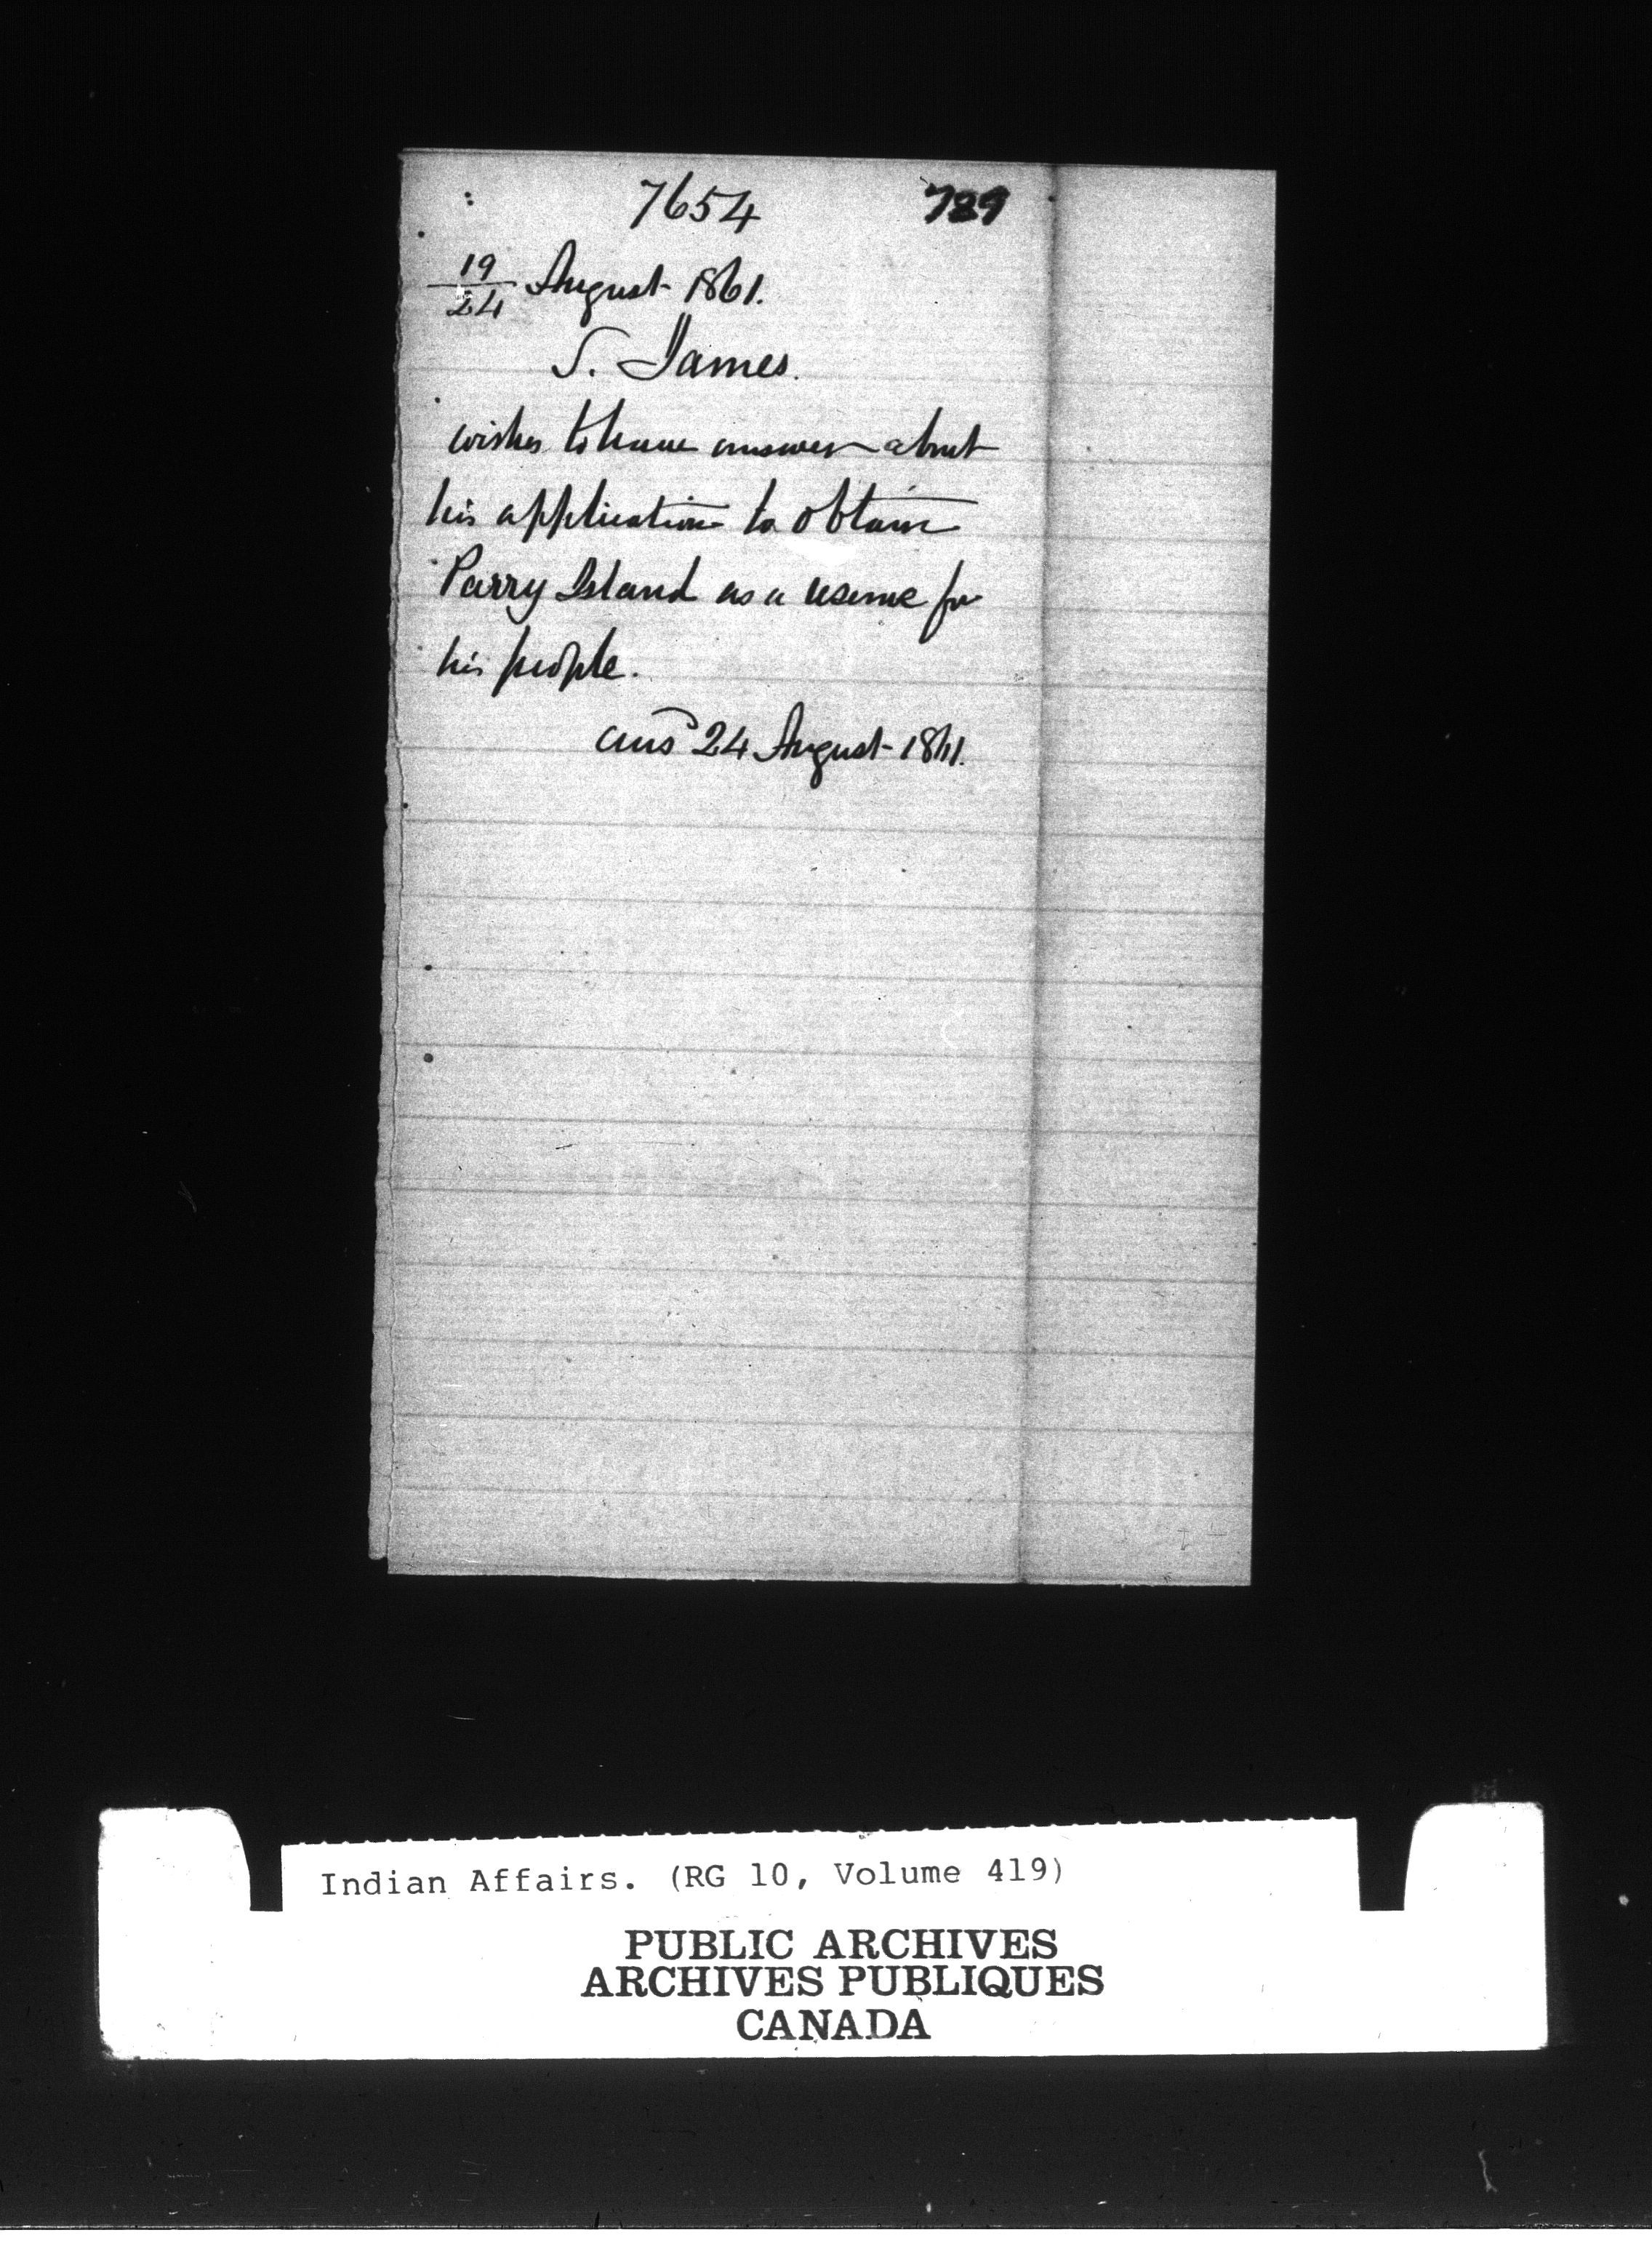 7654 789
19/24 August 1861.
S. James.
wishes to have answer about
his application to obtain
Parry Island as a reserve for
his people.
ansd 24 August 1861.
Indian Affairs. (RG 10, Volume 419)
PUBLIC ARCHIVES
ARCHIVES PUBLIQUES
CANADA